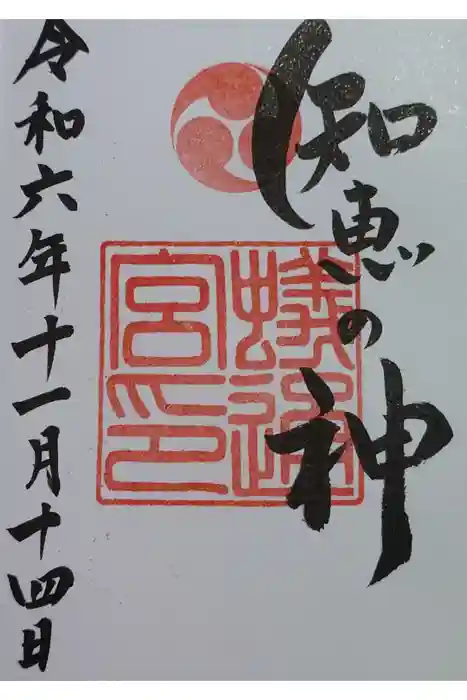 知恵の神
蟻通
宮印
令和六年十一月十四日